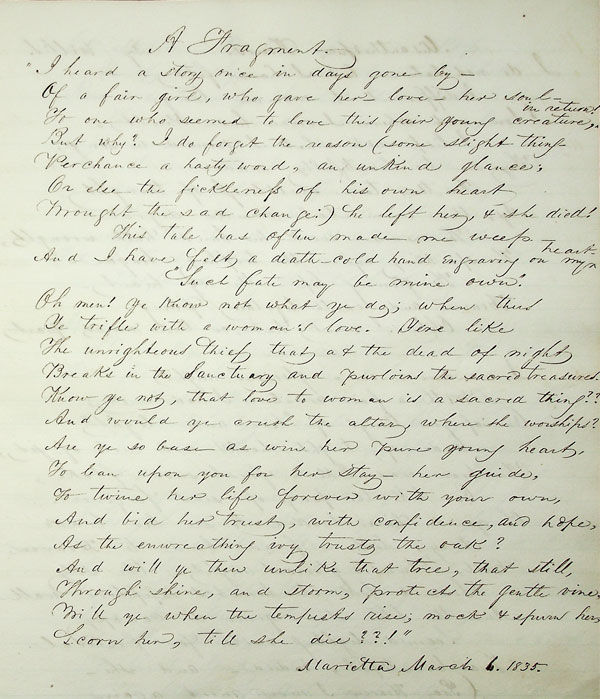 A Fragment.
"I heard a story once in days gone by—
Of a fair girl, who gave her love— her soul—
in return!
To one who seemed to love this fair young creature,
But why? I do forget the reason (some slight thing
Perchance a hasty word, an unkind glance;
Or else the fickleness of his own heart
Wrought the sad change:) he left her, & she died!
This tale has often made me weep
heart-
And I have felt, a death-cold hand Engraving on my
"Such fate may be mine own".
Oh men! ye know not what ye do; when thus
Ye trifle with a woman's love. Yere like
The unrighteous thief, that at the dead of night
Breaks in the Sanctuary and purloins the sacred treasures.
Know ye not, that love to woman is a sacred thing??
And would ye crush the altar, where she worships?
Are ye so base as win her pure young heart,
To lean upon you for her stay— her guide,
To twine her life forever with your own,
And bid her trust, with confidence, and hope,
As the enwreathing ivy trusts the oak?
And will ye then unlike that tree, that still,
Through shine, and storm, protects the gentle vine,
Will ye when the tempests rise; mock & spurn her,
Scorn her, till she die??!"
Marietta March 6. 1835.